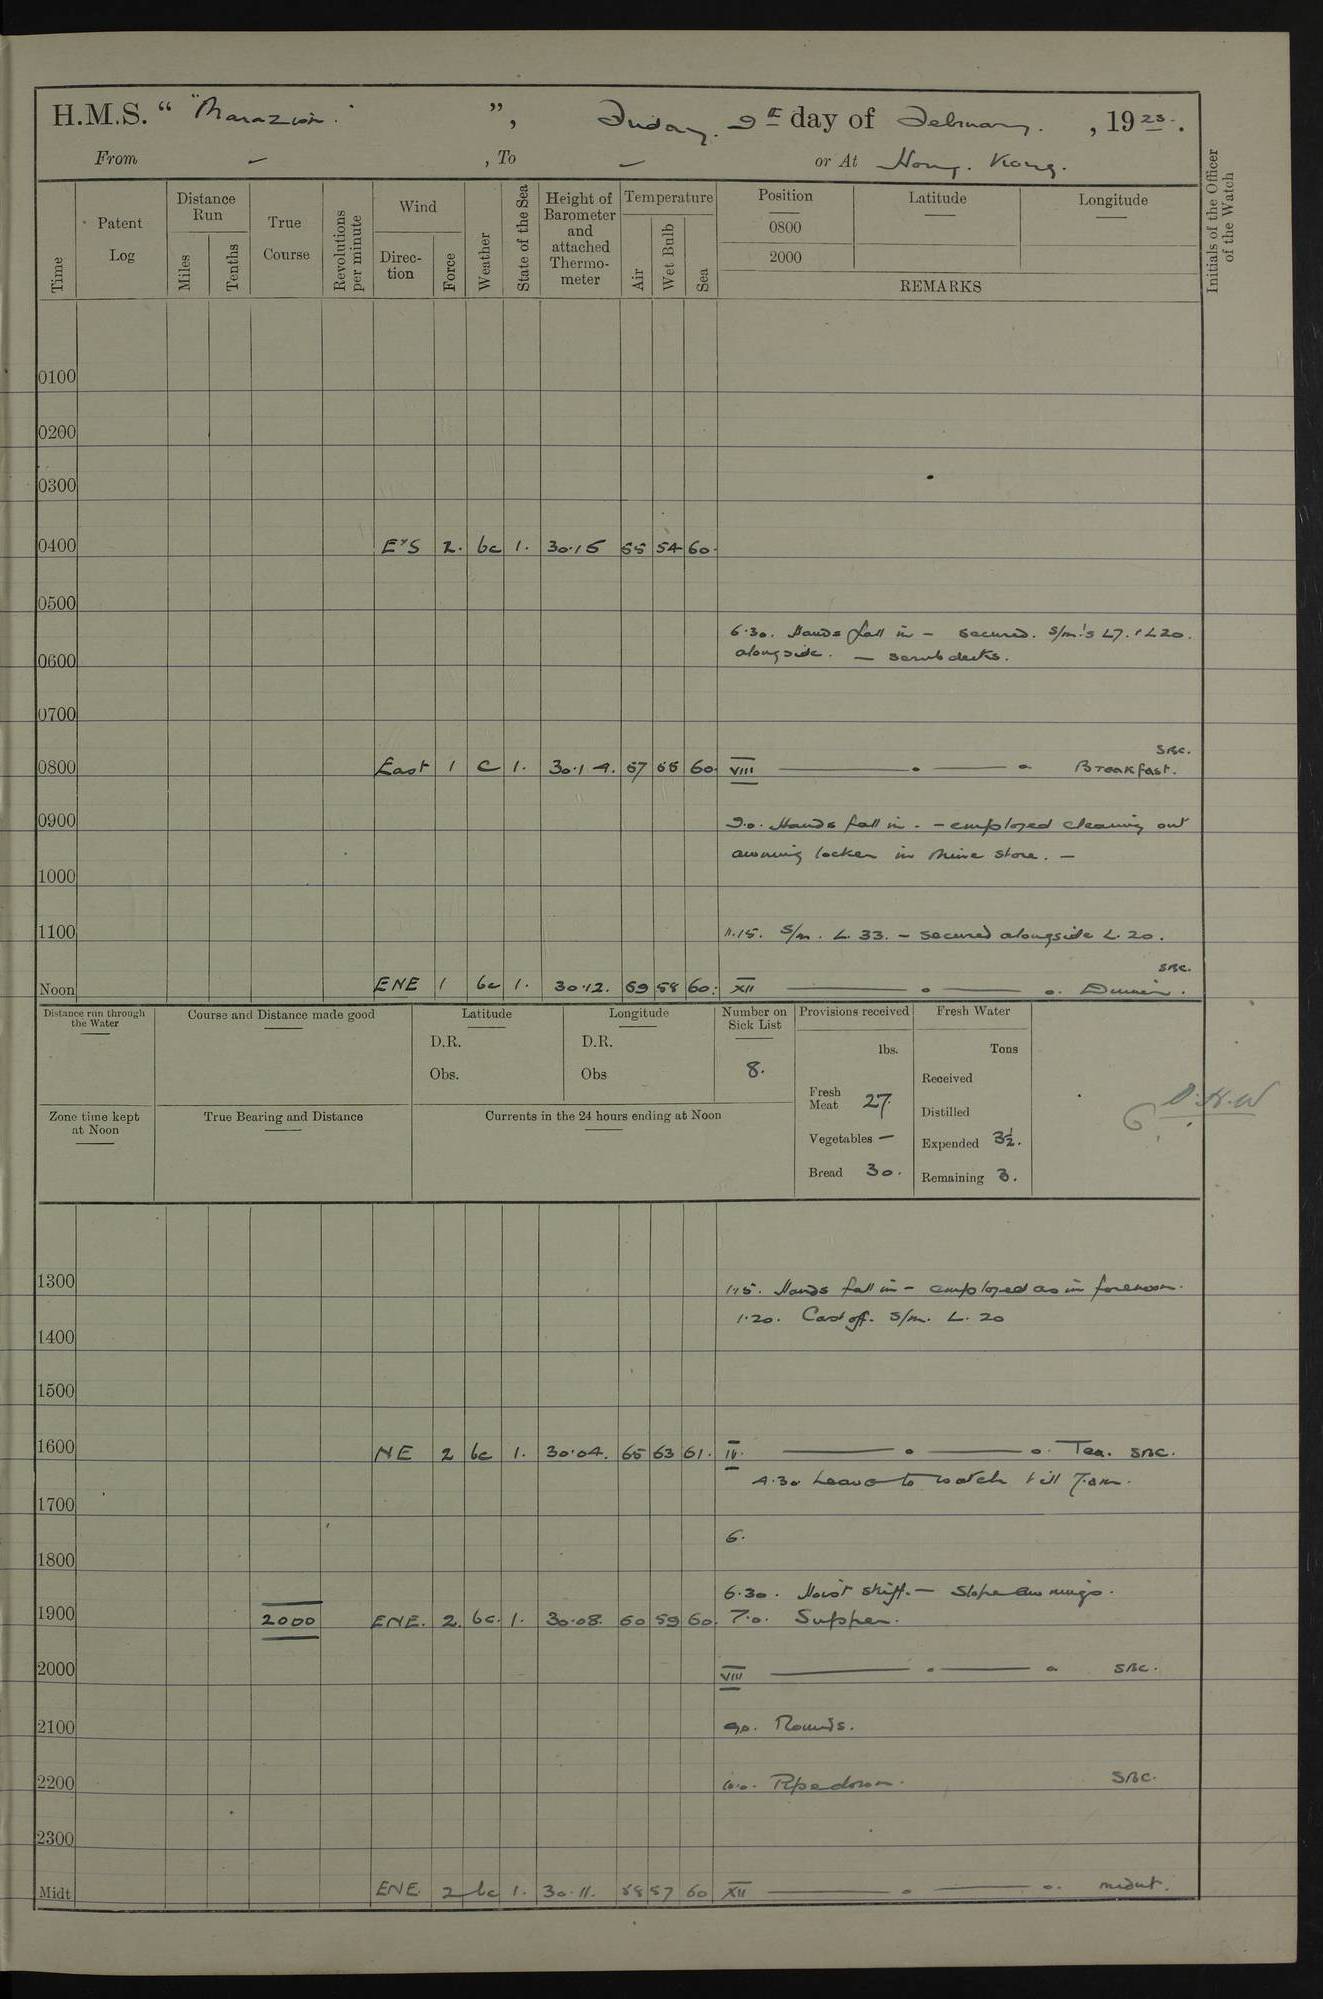 H.M.S. “ "Marazion." ”, Friday. 9th day of February. , 1923.
From — , To — or At Hong. Kong.
Time
Patent Log
Distance Run
Miles
Tenths
True Course
Revolutions per minute
Wind
Direction
Force
Weather
State of the Sea
Height of Barometer and attached Thermometer
Temperature
Air
Wet Bulb
Sea
Position
0800
2000
Latitude
Longitude
REMARKS
Initials of the Officer of the Watch
0100
0200
0300
0400 E'S 2. bc 1. 30.15 55 54 60.
0500
6.30. Hands fall in — secured. S/m's L7. & L20.
0600 alongside. — scrub decks.
0700
SBC.
0800 East 1 c 1. 30.14. 57 55 60. VIII Breakfast.
0900 9.0. Hands fall in. — employed cleaning out
awning locker in mine store. —
1000
1100 11.15. S/m. L. 33. — secured alongside L. 20.
SBC.
Noon ENE 1 bc 1. 30.12. 59 58 60. XII Dinner.
Distance run through the Water
Course and Distance made good
Latitude
D.R.
Obs.
Longitude
D.R.
Obs
Number on Sick List
8.
Provisions received
lbs.
Fresh Meat 27.
Vegetables —
Bread 30.
Fresh Water
Tons
Received
Distilled
Expended 3½.
Remaining 3.
Zone time kept at Noon
True Bearing and Distance
Currents in the 24 hours ending at Noon
1300 1.15. Hands fall in — employed as in forenoon.
1.20. Cast off. S/m. L. 20
1400
1500
1600 NE 2 bc 1. 30.04. 65 63 61. IV. Tea. SBC.
4.30 Leave to watch till 7.am.
1700
6.
1800
6.30. Hoist skiff. — Slope awnings.
1900 2000 ENE. 2. bc. 1. 30.08. 60 59 60. 7.0. Supper.
2000 VIII SBC.
2100 9.0. Rounds.
2200 10.0. Pipe down. SBC.
2300
Midt ENE 2 bc 1. 30.11. 58 57 60 XII midnt.